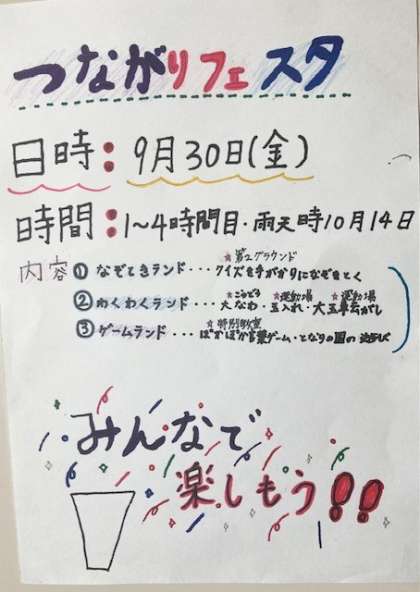 つながりフェスタ
日時：9月30日(金)
時間：1～4時間目・雨天時10月14日
内容
★第2グラウンド
①なぞときランド・・・クイズを手がかりになぞをとく
★運動場 ★運動場
②わくわくランド・・・大なわ・玉入れ・大玉
★特別教室
③ゲームランド・・・ぽかぽか言葉ゲーム・となりの国の
みんなで
楽しもう!!